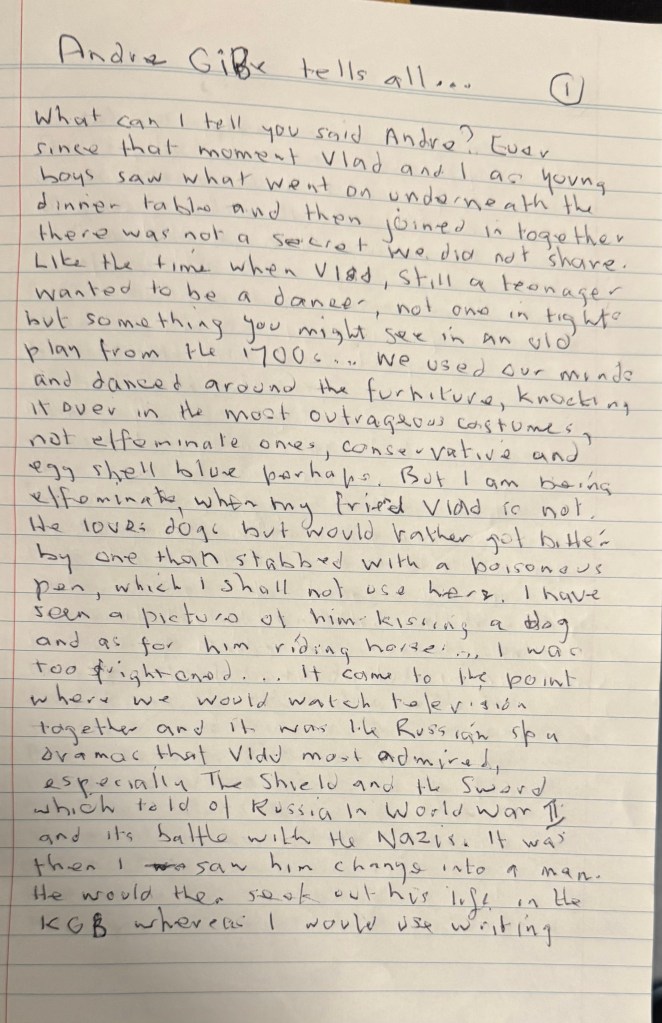 Andre GiBe tells all... ①
What can I tell you said Andre? Ever
since that moment Vlad and I as young
boys saw what went on underneath the
dinner table and then joined in together
there was not a secret we did not share.
Like the time when Vlad, still a teenager
wanted to be a dancer, not one in tights
but something you might see in an old
plan from the 1700s... We used our minds
and danced around the furniture, knocking
it over in the most outrageous costumes,
not effeminate ones, conservative and
egg shell blue perhaps. But I am being
effeminate, when my friend Vlad is not.
He loves dogs but would rather got bitten
by one than stabbed with a poisonous
pen, which I shall not use here. I have
seen a picture of him kissing a dog
and as for him riding horses... I was
too frightened... It came to the point
where we would watch television
together and it was the Russian spy
dramas that Vlad most admired,
especially The Shield and the Sword
which told of Russia in World War II
and its battle with the Nazis. It was
then I saw him change into a man.
He would then seek out his life in the
KGB whereas I would use writing